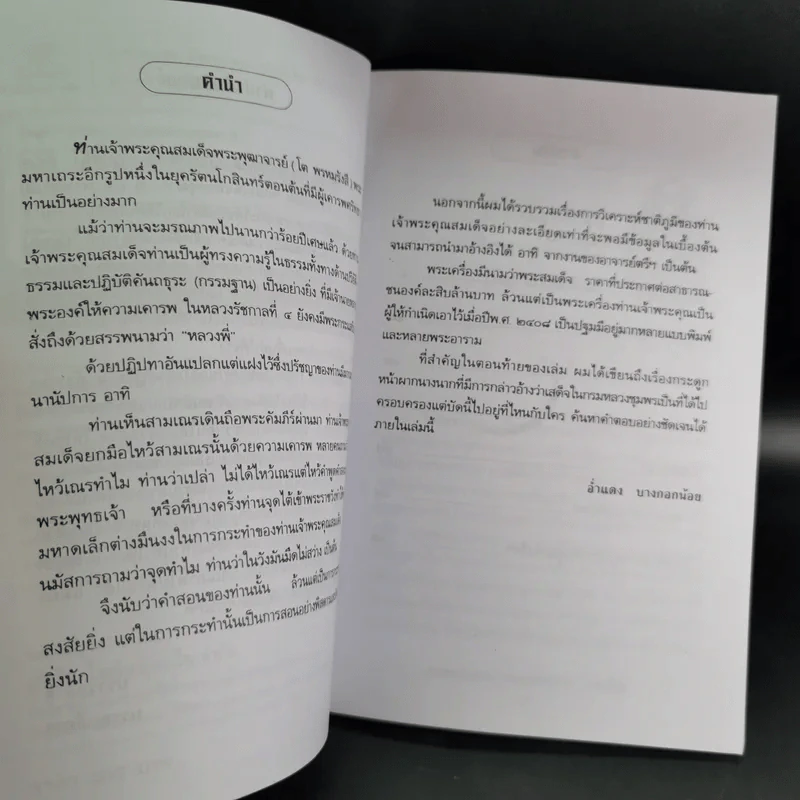 คำนำ
ท่านเจ้าพระคุณสมเด็จพระพุฒาจารย์ (โต พรหมรังสี)
มหาเถระอีกรูปหนึ่งในยุครัตนโกสินทร์ตอนต้นที่มีผู้เคารพศรัทธา
ท่านเป็นอย่างมาก
แม้ว่าท่านจะมรณภาพไปนานกว่าร้อยปีเศษแล้ว ด้วย
เจ้าพระคุณสมเด็จท่านเป็นผู้ทรงความรู้ในธรรมทั้งทางด้าน
ธรรมและปฏิบัติคันถธุระ (กรรมฐาน) เป็นอย่างยิ่ง ที่มีเจ้านาย
พระองค์ให้ความเคารพ ในหลวงรัชกาลที่ ๔ ยังคงมีพระกระแส
สั่งถึงด้วยสรรพนามว่า "หลวงพี่"
ด้วยปฏิปทาอันแปลกแต่แฝงไว้ซึ่งปรัชญาของท่าน
นานัปการ อาทิ
ท่านเห็นสามเณรเดินถือพระคัมภีร์ผ่านมา
สมเด็จยกมือไหว้สามเณรนั้นด้วยความเคารพ หลายคน
ไหว้เณรทำไม ท่านว่าเปล่า ไม่ได้ไหว้เณรแต่ไหว้คำพูด
พระพุทธเจ้า หรือที่บางครั้งท่านจุดไต้เข้าพระราชวัง
มหาดเล็กต่างมึนงงในการกระทำของท่านเจ้าพระคุณสมเด็จ
นมัสการถามว่าจุดทำไม ท่านว่าในวังมันมืดไม่สว่าง เป็นต้น
จึงนับว่าคำสอนของท่านนั้น ล้วนแต่เป็นการ
สงสัยยิ่ง แต่ในการกระทำนั้นเป็นการสอนอย่าง
ยิ่งนัก
นอกจากนี้ผมได้รวบรวมเรื่องการวิเคราะห์ชาติภูมิของท่าน
เจ้าพระคุณสมเด็จอย่างละเอียดเท่าที่จะพอมีข้อมูลในเบื้องต้น
จนสามารถนำมาอ้างอิงได้ อาทิ จากงานของอาจารย์ตรีฯ เป็นต้น
พระเครื่องมีนามว่าพระสมเด็จ ราคาที่ประกาศต่อสาธารณ-
ชนองค์ละสิบล้านบาท ล้วนแต่เป็นพระเครื่องท่านเจ้าพระคุณเป็น
ผู้ให้กำเนิดเอาไว้เมื่อปีพ.ศ. ๒๔๐๘ เป็นปฐมมีอยู่มากหลายแบบพิมพ์
และหลายพระอาราม
ที่สำคัญในตอนท้ายของเล่ม ผมได้เขียนถึงเรื่องกระดูก
หน้าผากนางนากที่มีการกล่าวอ้างว่าเสด็จในกรมหลวงชุมพรเป็นที่ได้ไป
ครอบครองแต่บัดนี้ไปอยู่ที่ไหนกับใคร ค้นหาคำตอบอย่างชัดเจนได้
ภายในเล่มนี้
อำแดง บางกอกน้อย